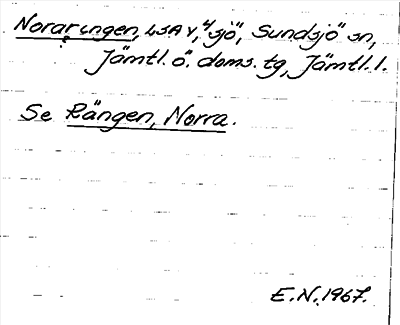 Noraringen, LSA V, "sjö", Sundsjö sn,
Jämtl. ö. doms. tg, Jämtl. l.
Se Rängen, Norra.
E.N. 1967.